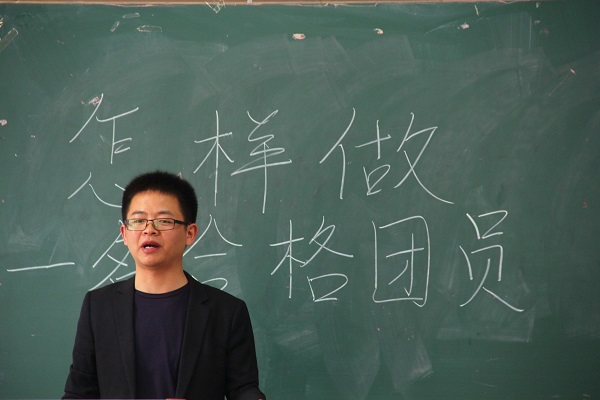 怎样做
一名合格团员